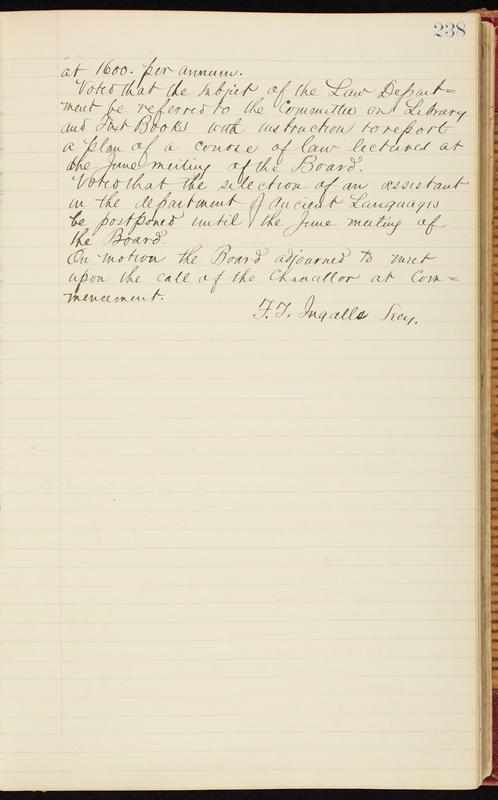 238
at 1600. per annum.
Voted that the subject of the Law Depart=
ment be referred to the Committee on Library
and Text Books with instruction to report
a plan of a course of law lectures at
the June meeting of the Board.
Voted that the selection of an assistant
in the department of Ancient Languages
be postponed until the June meeting of
the Board.
On motion the Board adjourned to meet
upon the call of the Chancellor at Com=
mencement.
F. T. Ingalls Secy.